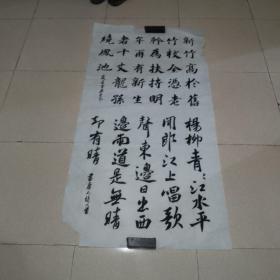 新竹高於舊
竹枝全憑老
幹為扶持明
年再有新生
者十丈龍孫
繞鳳池
楊柳青々江水平
聞郎江上唱歌
聲東邊日出西
邊雨道是無晴
却有晴